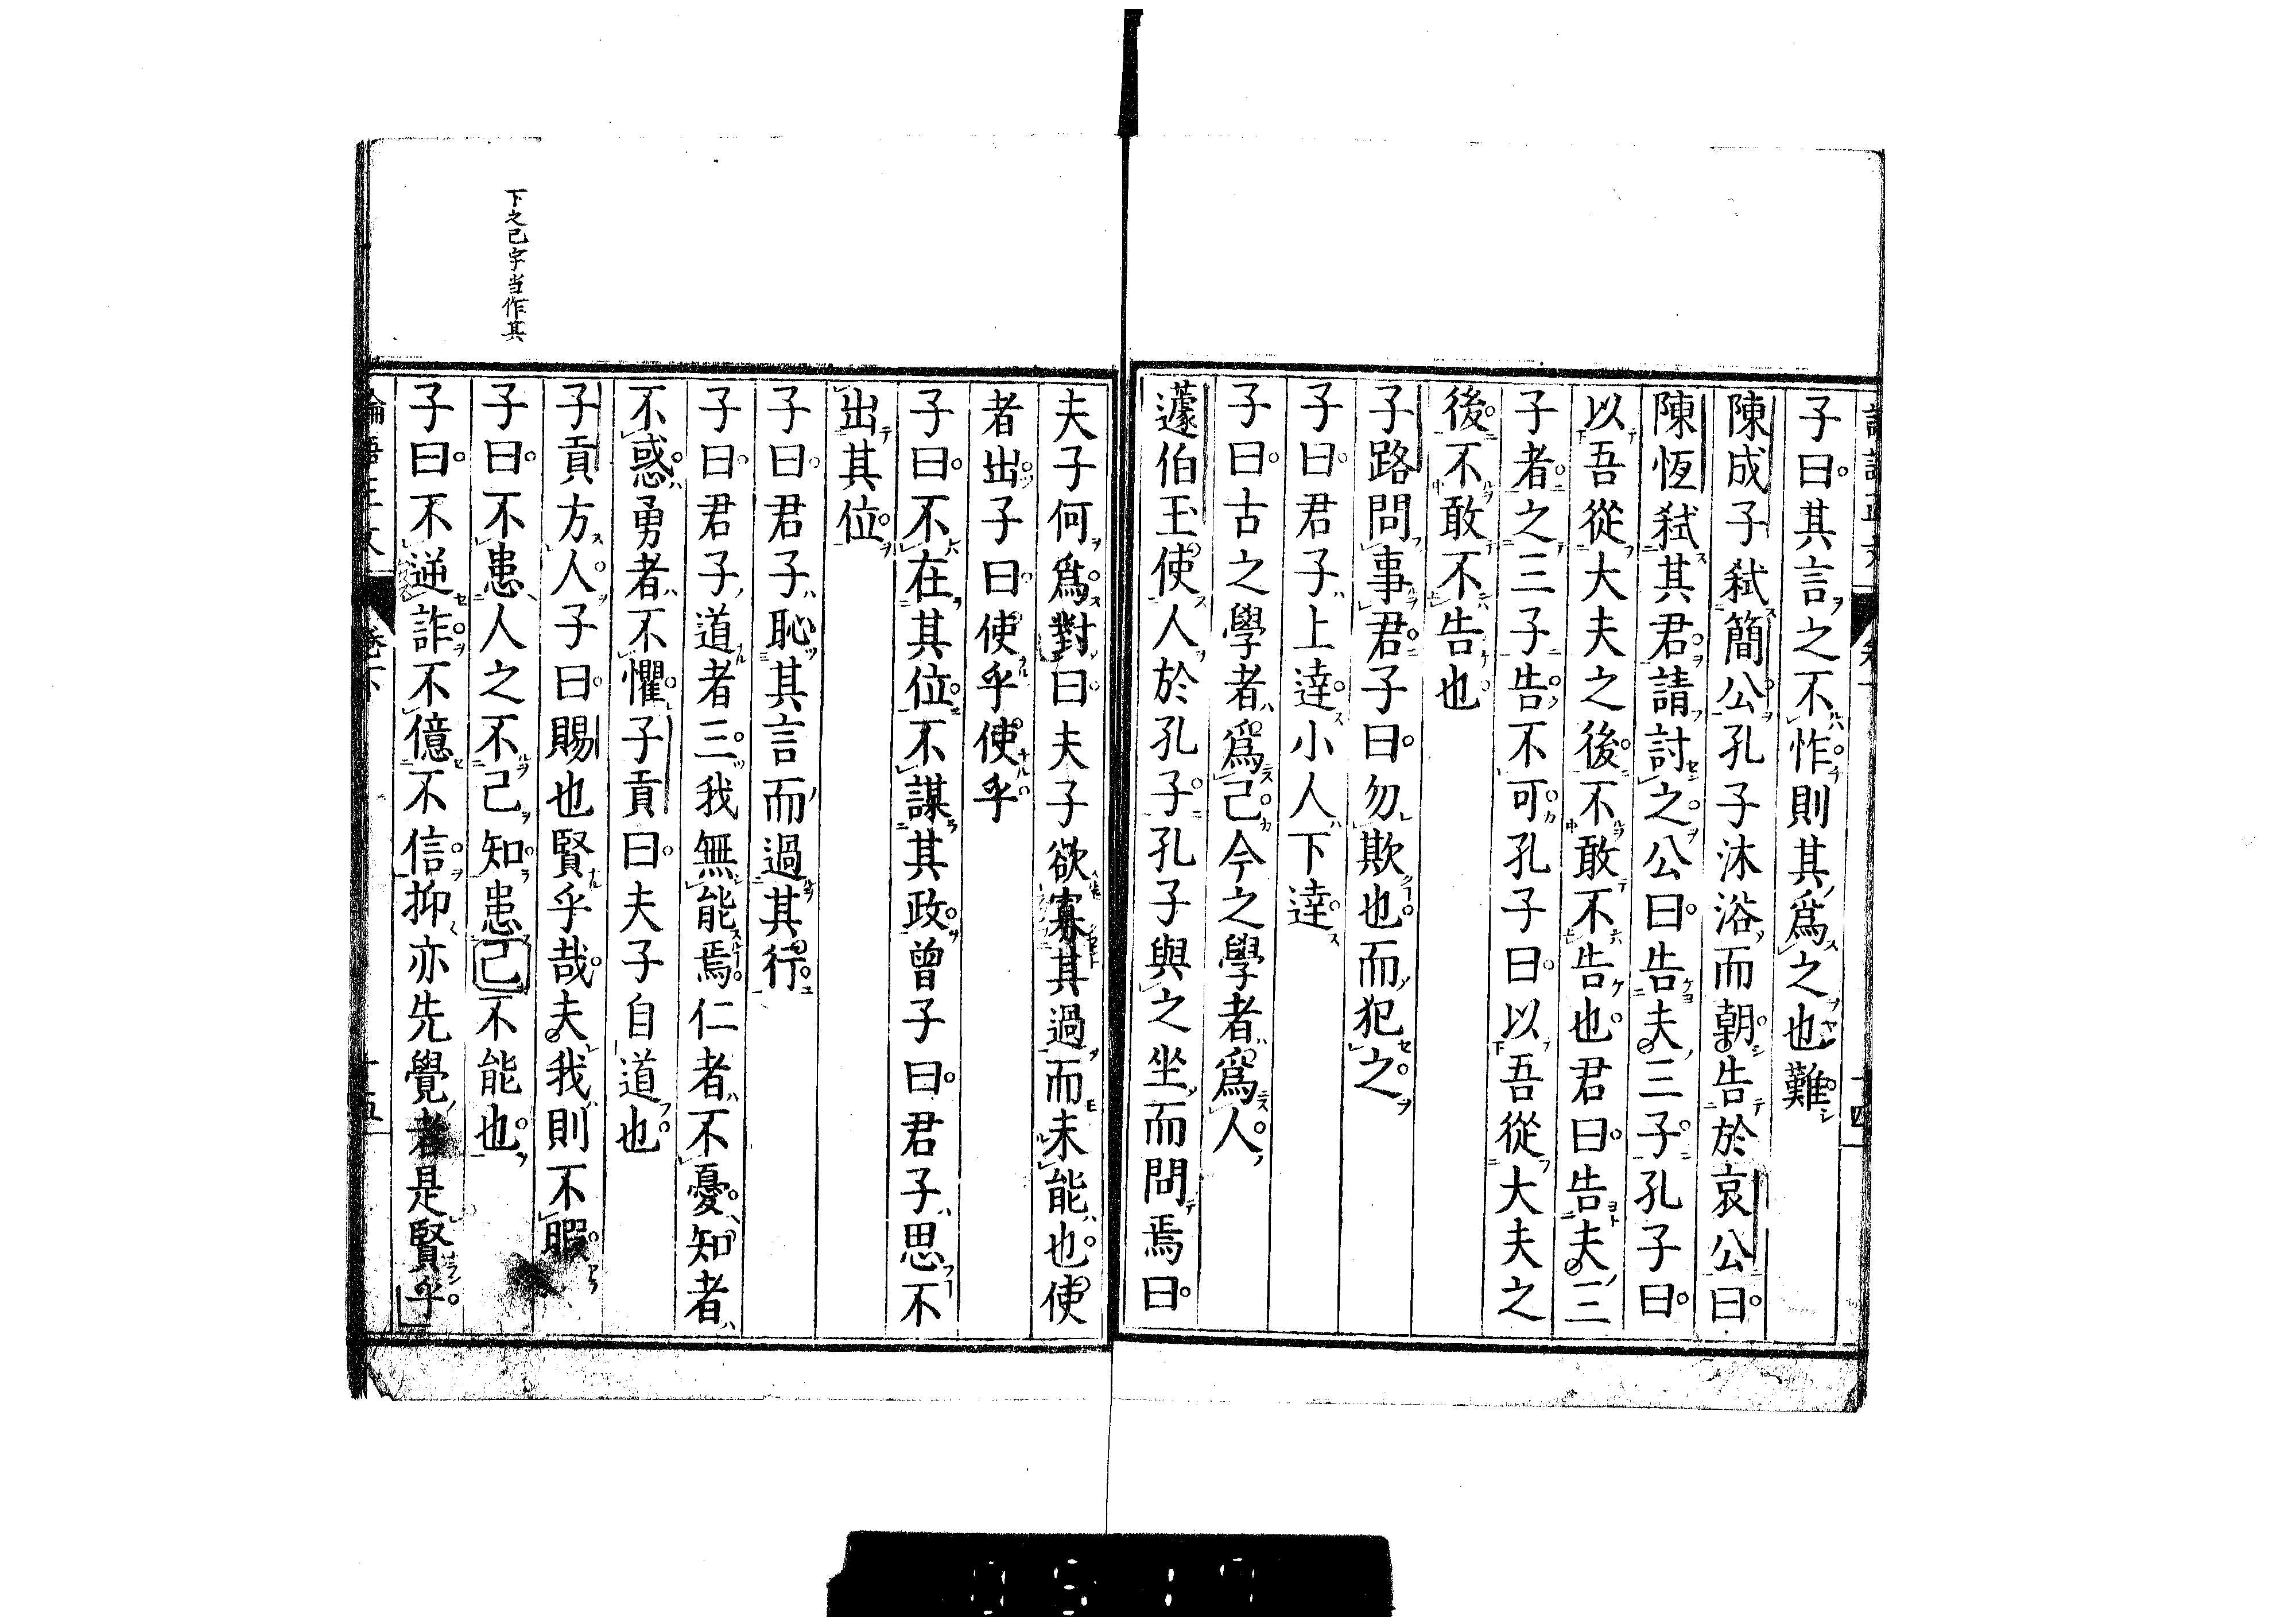 子曰其言之不怍則其爲之也難
陳成子弑簡公孔子沐浴而朝告於哀公曰
陳恆弑其君請討之公曰告夫三子孔子曰
以吾從大夫之後不敢不告也君曰告夫三
子者之三子告不可孔子曰以吾從大夫之
後不敢不告也
子路問事君子曰勿欺也而犯之
子曰君子上達小人下達
子曰古之學者爲己今之學者爲人
蘧伯玉使人於孔子孔子與之坐而問焉曰
夫子何爲對曰夫子欲寡其過而未能也使
者出子曰使乎使乎
子曰不在其位不謀其政曾子曰君子思不
出其位
子曰君子恥其言而過其行
子曰君子道者三我無能焉仁者不憂知者
不惑勇者不懼子貢曰夫子自道也
子貢方人子曰賜也賢乎哉夫我則不暇
下之己字当作其
子曰不患人之不己知患己不能也
子曰不逆詐不億不信抑亦先覺者是賢乎